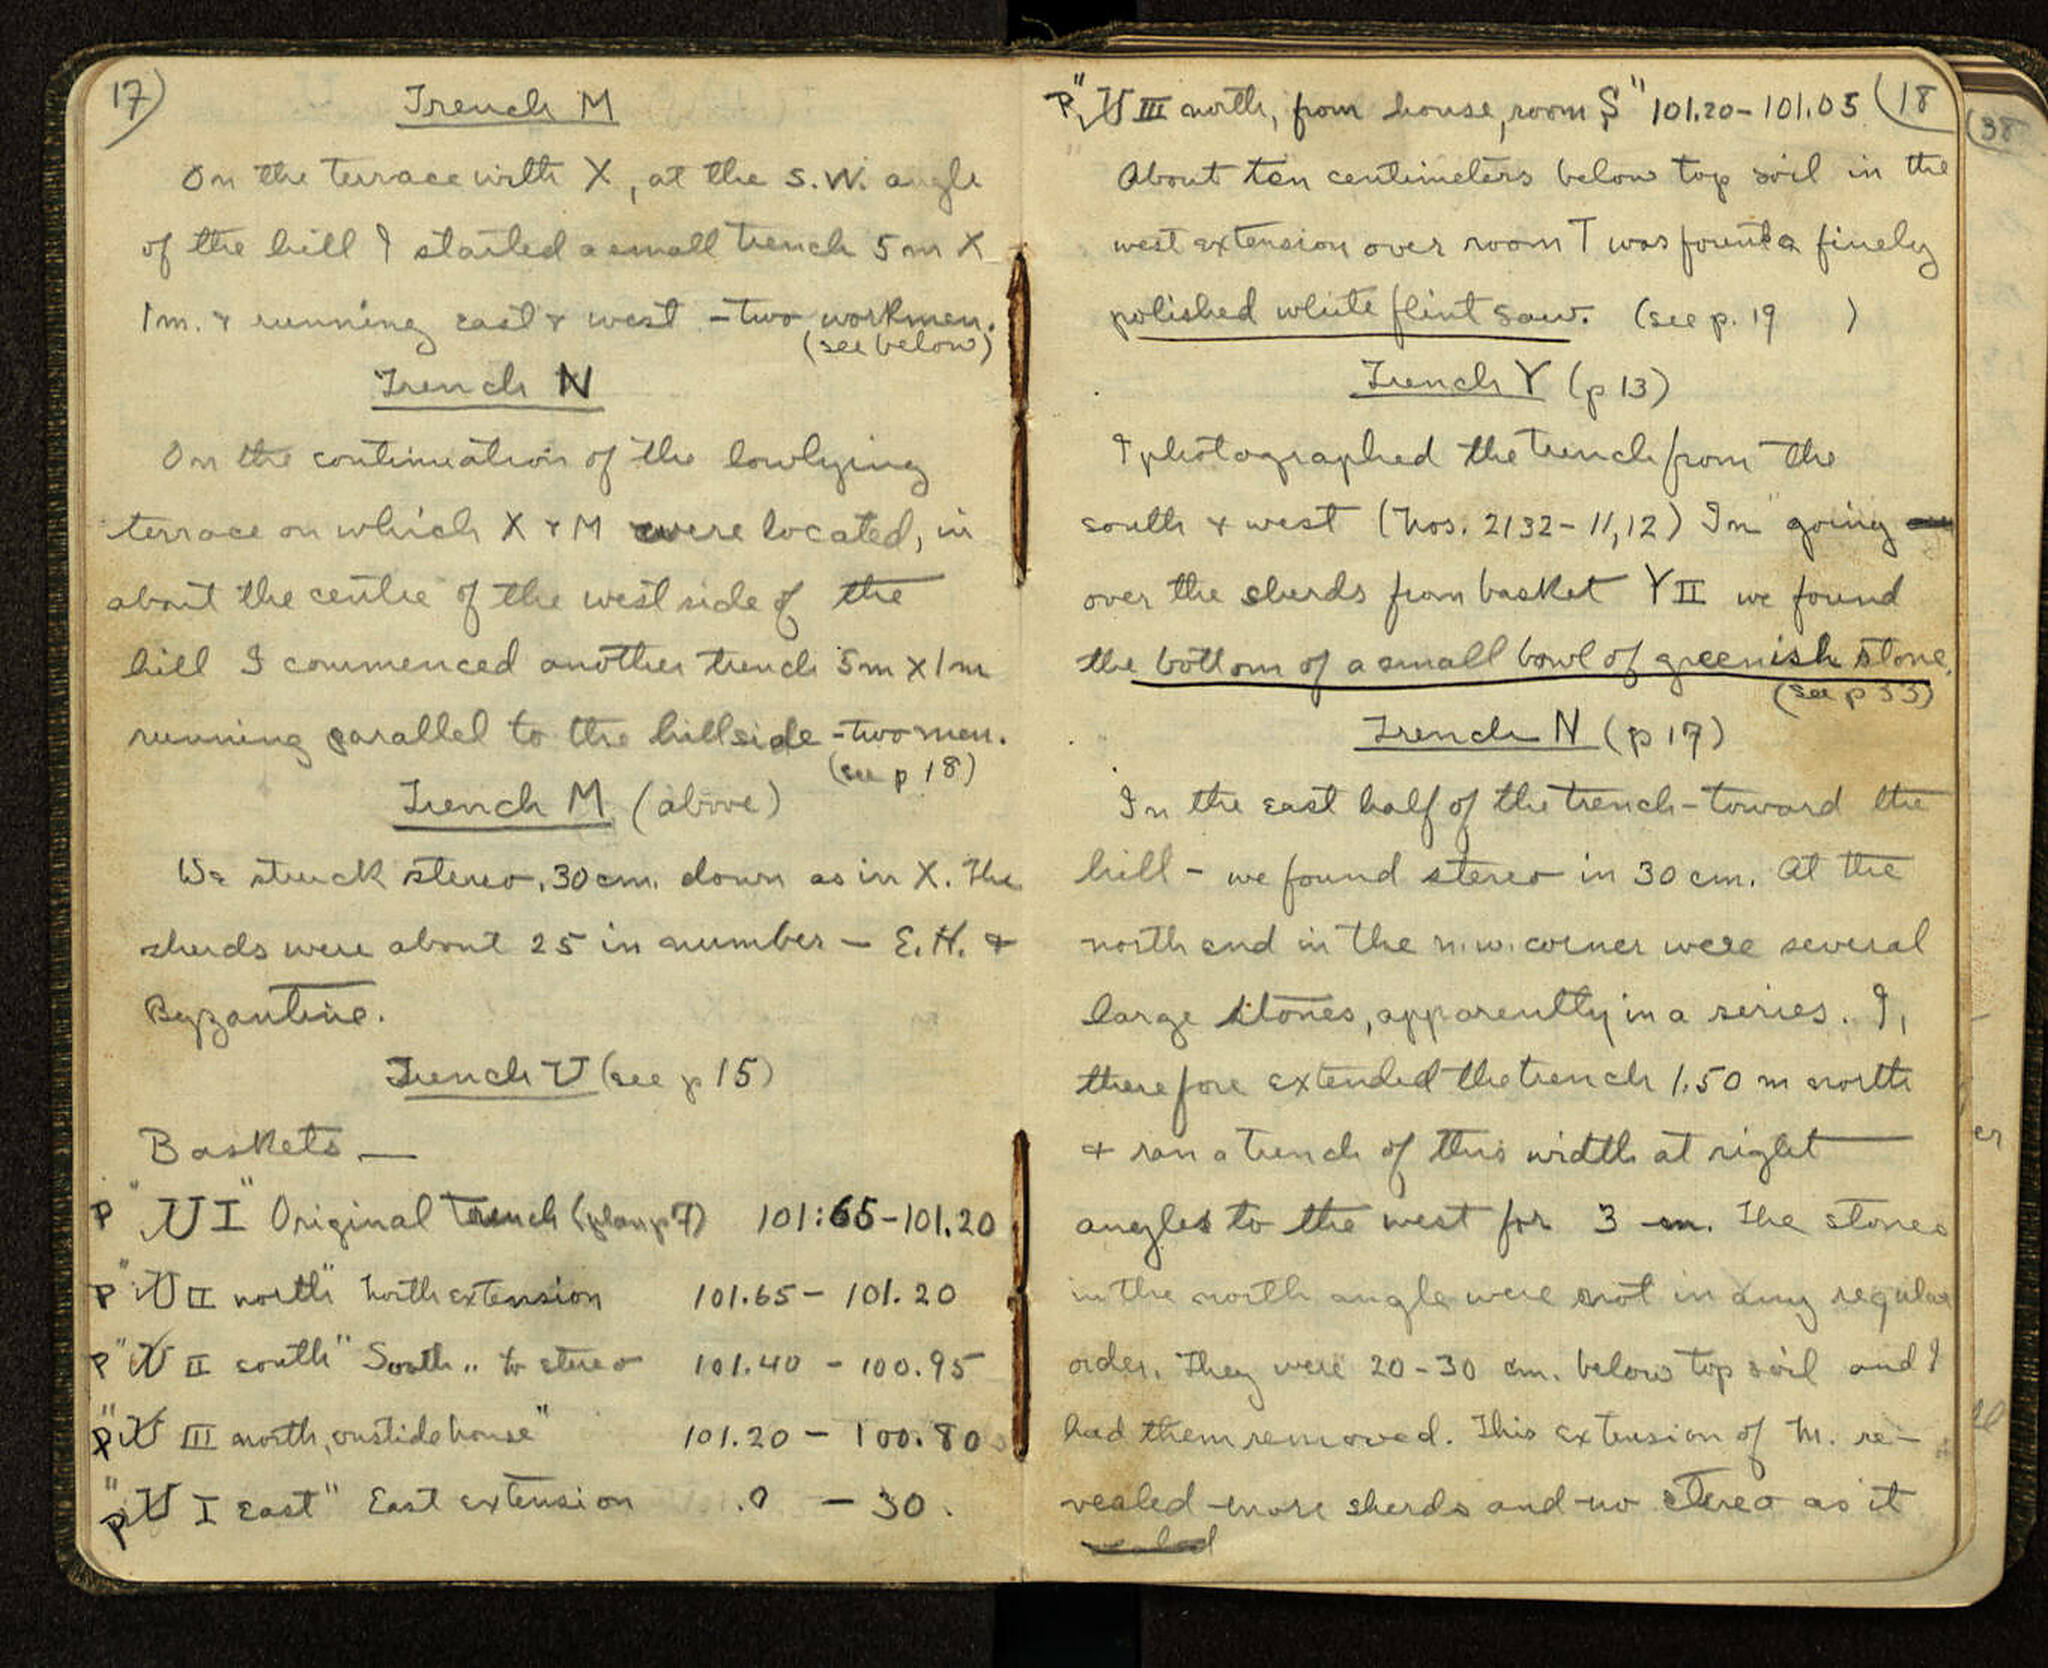 17)
Trench M
On the terrace with X, at the S.W. angle
of the hill I started a small trench 5m X
1m. & running east & west - two workmen.
(see below)
Trench N
On the continuation of the lowlying
terrace on which X & M were located, in
about the centre of the west side of the
hill I commenced another trench 5m X 1m
running parallel to the hillside - two men.
(see p 18)
Trench M (above)
We struck stereo, 30 cm. down as in X. The
sherds were about 25 in number - E.H. &
Byzantine.
Trench U (see p 15)
Baskets —
P "U I" Original trench (plan p 7) 101:65 - 101.20
P "U II north" North extension 101.65 - 101.20
P "U II south" South " to stereo 101.40 - 100.95
P "U III north, outside house" 101.20 - 100.80
P "U I East" East extension .0 - 30.
P "U III north, from house, room S" 101.20 - 101.05 (18
About ten centimeters below top soil in the
west extension over room T was found a finely
polished white flint saw. (see p. 19 )
Trench Y (p 13)
I photographed the trench from the
south & west (Nos. 2132 - 11, 12) In going
over the sherds from basket Y II we found
the bottom of a small bowl of greenish stone.
(see p 33)
Trench N (p 17)
In the east half of the trench - toward the
hill - we found stereo in 30 cm. At the
north end in the n.w. corner were several
large stones, apparently in a series. I,
therefore extended the trench 1.50 m north
& ran a trench of this width at right
angles to the west for 3 m. The stones
in the north angle were not in any regular
order. They were 20 - 30 cm. below top soil and I
had them removed. This extension of M. re-
vealed more sherds and no stereo as it
(38
er